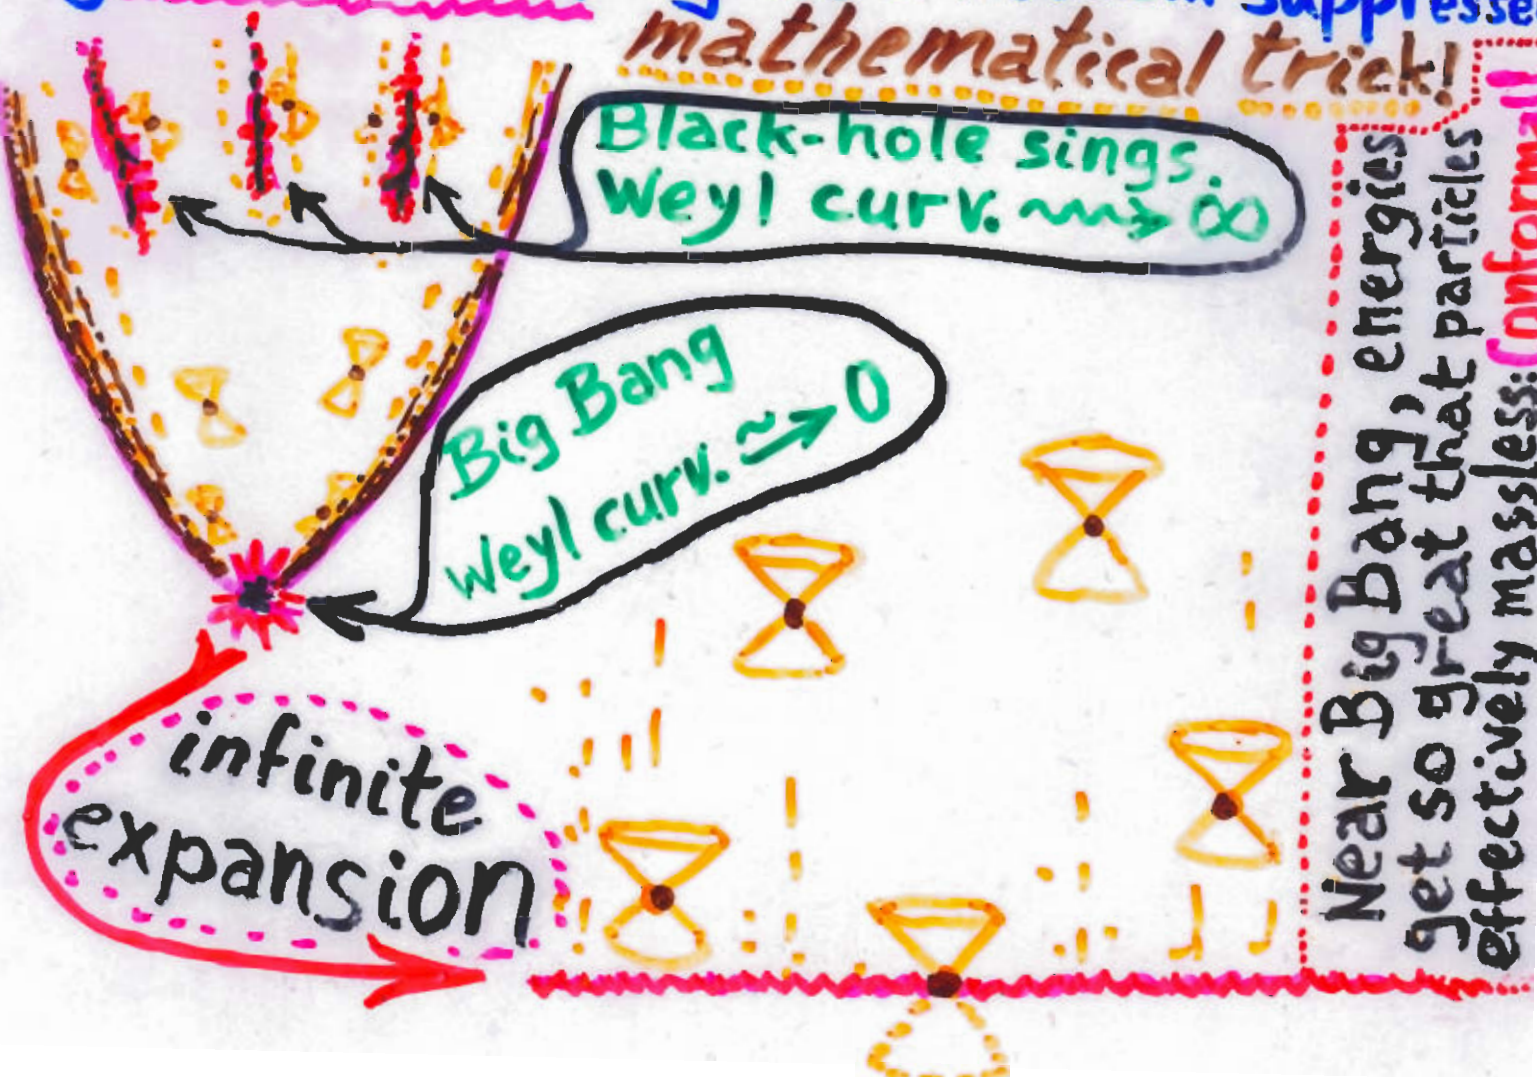 suppresse
mathematical trick!
Black-hole sings.
Weyl curv. ⇝ ∞
Big Bang
Weyl curv. ⇝ 0
infinite
expansion
Near Big Bang, energies
get so great that particles
effectively massless: Conformal